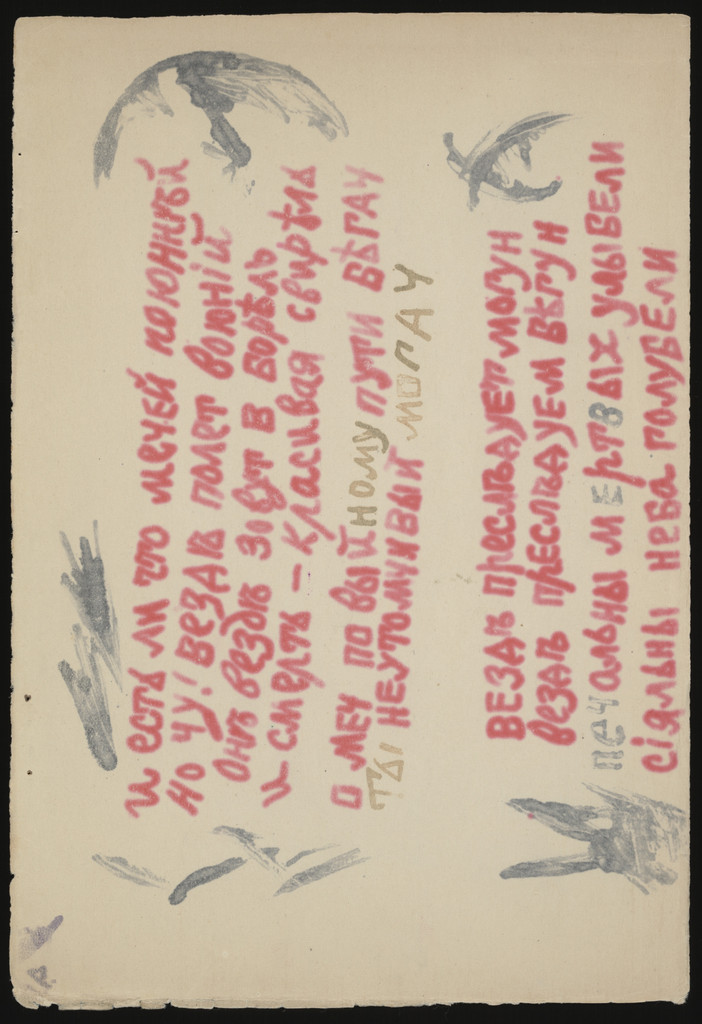 и есть ли что мечей поюннѣй
но чу! вездѣ полет воюнiй
онѣ вездѣ зовут в борѣль
и смерть – красивая свирѣль
о меч по выйному пути бѣгач
ты неутомимый могач
вездѣ преслѣдует могун
вездѣ преслѣдуем бѣгун
печальны мертвых улыбели
сiяльны неба голубели